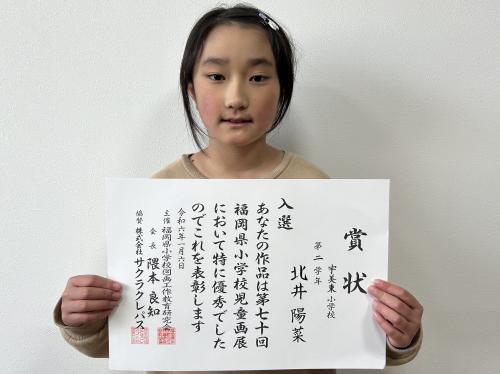 賞状
宇美東小学校
第二学年
北井陽菜
入選
あなたの作品は第七十回
福岡県小学校児童画展
において特に優秀でした
のでこれを表彰します
令和六年一月六日
主催 福岡県小学校図画工作教育研究会
会長 隈本良知
協賛 株式会社サクラクレパス